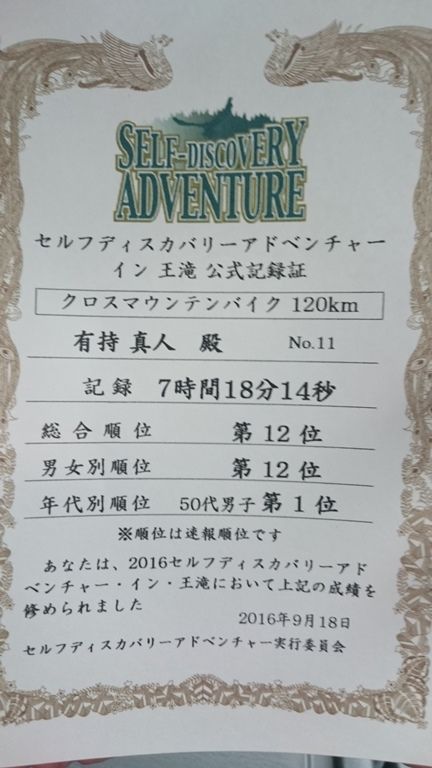 SELF-DISCOVERY
ADVENTURE
セルフディスカバリーアドベンチャー
イン 王滝 公式記録証
クロスマウンテンバイク 120km
有持 真人 殿 No.11
記録 7時間18分14秒
総合順位 第 12 位
男女別順位 第 12 位
年代別順位 50代男子 第 1 位
※順位は速報順位です
あなたは、2016セルフディスカバリーアド
ベンチャー・イン・王滝において上記の成績を
修められました
2016年9月18日
セルフディスカバリーアドベンチャー実行委員会